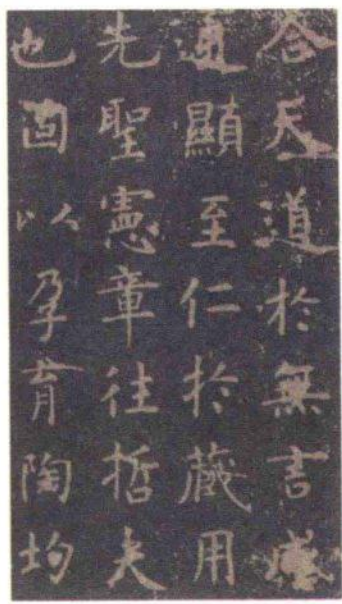 合天道於無言感
通顯至仁於藏用
先聖憲章往哲夫
也固以孕育陶均